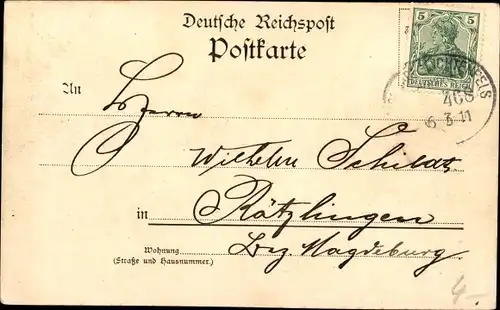 Deutsche Reichspost
Postkarte
5 5
DEUTSCHES REICH
LICHTENFELS
466
6 3 11
An
Herrn
Wilhelm Schildt
in Rätzlingen
Bez. Magdeburg
Wohnung
(Straße und Hausnummer.)
4-